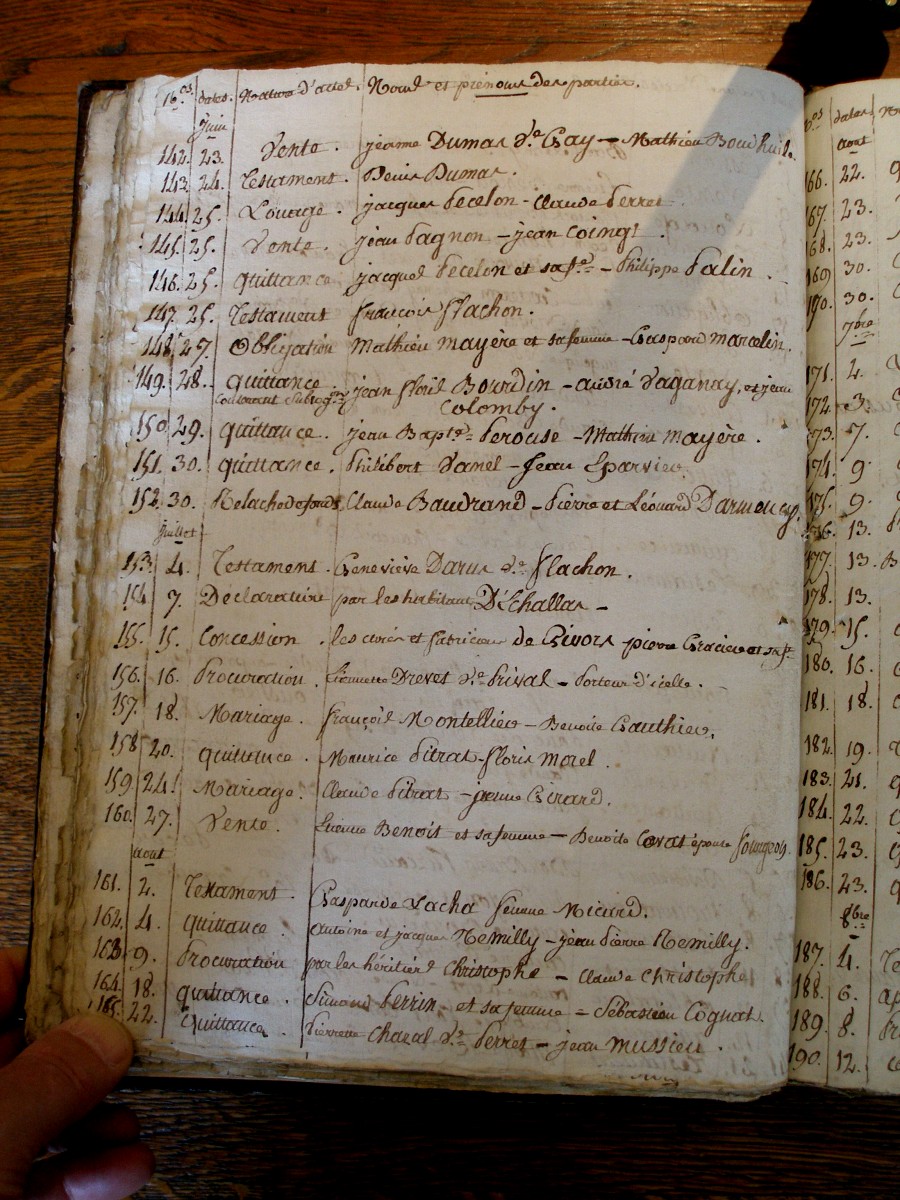 N.os dates. Nature d'actes. Noms et prénoms des parties.
Juin
142. 23. Vente. jeanne Dumas v.e Gay - Mathieu
143. 24. Testament. Denis Dumas.
144. 25. Louage. jacques Pecelon - Claude Perret
145. 25. Vente. jean Pagnon - jean Coingt.
146. 25. Quittance. jacques Pecelon et sa f.e - Philippe Palin.
147. 25. Testament françois flachon.
148. 27. Obligation Mathieu mayère et sa femme - Gaspard marcelin.
149. 28. Quittance jean floris Bourdin - andré Vaganay, et jean
contenant Subrog.on Colomby.
150. 29. quittance. jean Bapt.e Perouse - Mathieu mayère.
151. 30. quittance. Philibert Vanel - Jean Eparvier
152. 30. Relache de fonds Claude Baudrand - Pierre et Léonard
Juillet
153. 4. Testament. Geneviève Darus v.e flachon.
154. 7. Déclaration par les habitans D'Echallas -
155. 15. Concession. les curés et fabriciens de Givors pierre et sa f.e
156. 16. Procuration. Drevet v.e Prival - Porteur d'icelle.
157. 18. Mariage. françois Montellier - Benoite Gauthier.
158. 20. quittance. Maurice Pitrat - floris morel.
159. 24. Mariage. Claude Pitrat - jeanne Girard.
160. 27. Vente. Etienne Benoit et sa femme - Benoite épouse
aout
161. 2. Testament. Gasparde Vacha femme Micard.
162. 4. Quittance. antoine et jacques Remilly - jean Pierre Remilly.
163. 9. Procuration par les héritiers Christophe - Claude Christophe
164. 18. quittance. Simond Perrin et sa femme - Sébastien Cognat.
165. 22. Quittance. Pierrette Charal v.e Perret - jean mussieu.
N.os dates
aout
166. 22.
167. 23.
168. 23.
169 30.
190. 30.
7bre
171. 2.
172. 3.
173. 7.
174. 9.
175. 9.
176. 13.
177. 13.
178. 13.
179. 15.
180. 16.
181. 18.
182. 19.
183. 21.
184. 22.
185. 23.
186. 23.
8bre
187. 4.
188. 6.
189. 8.
190. 12.